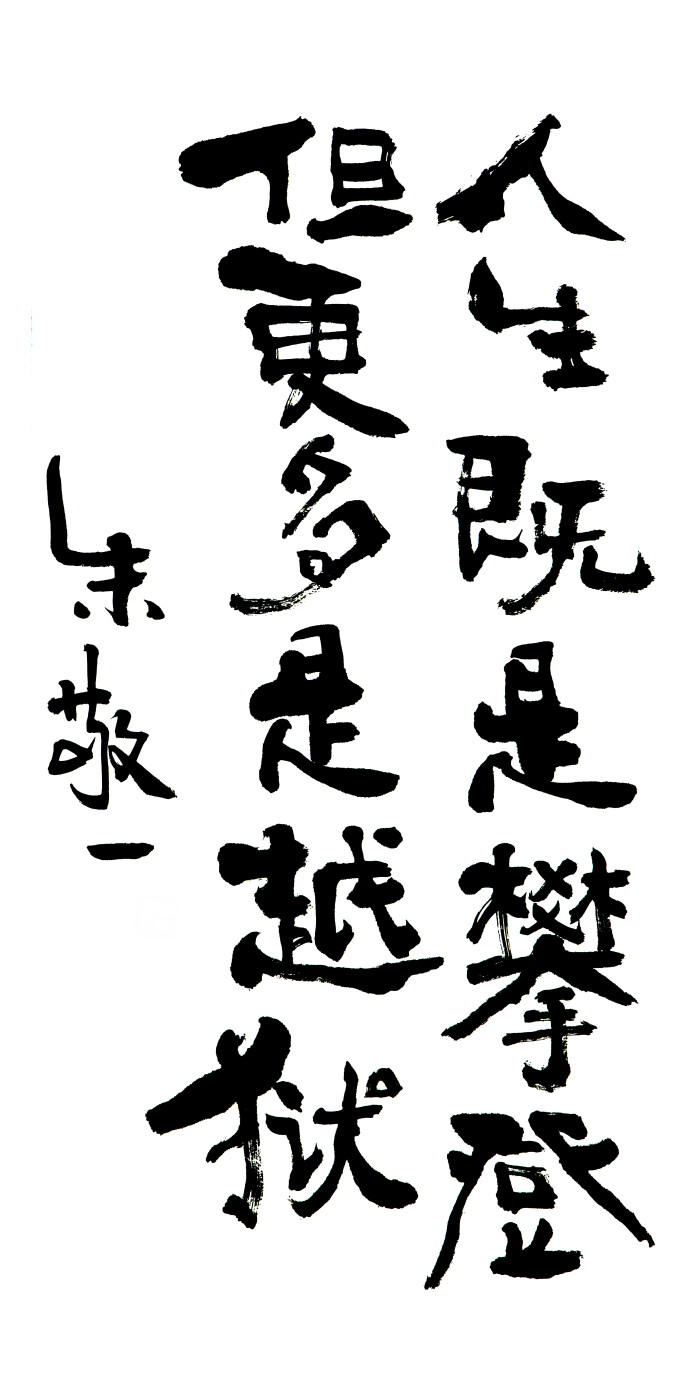 人生既是攀登
但更多是越狱
朱敬一